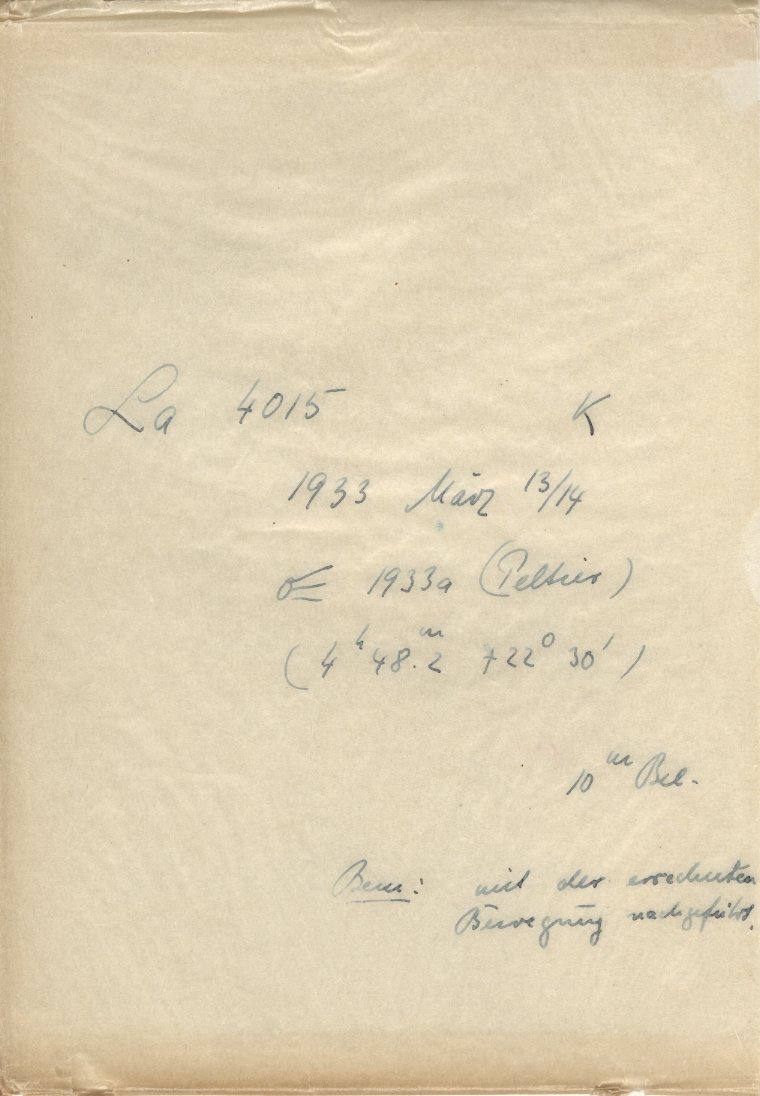 La 4015 K
1933 März 13/14
☄ 1933a (Peltier)
(4ʰ 48.ᵐ2 +22° 30′)
10ᵐ Bel.
Bem: mit der errechneten
Bewegung nachgeführt.